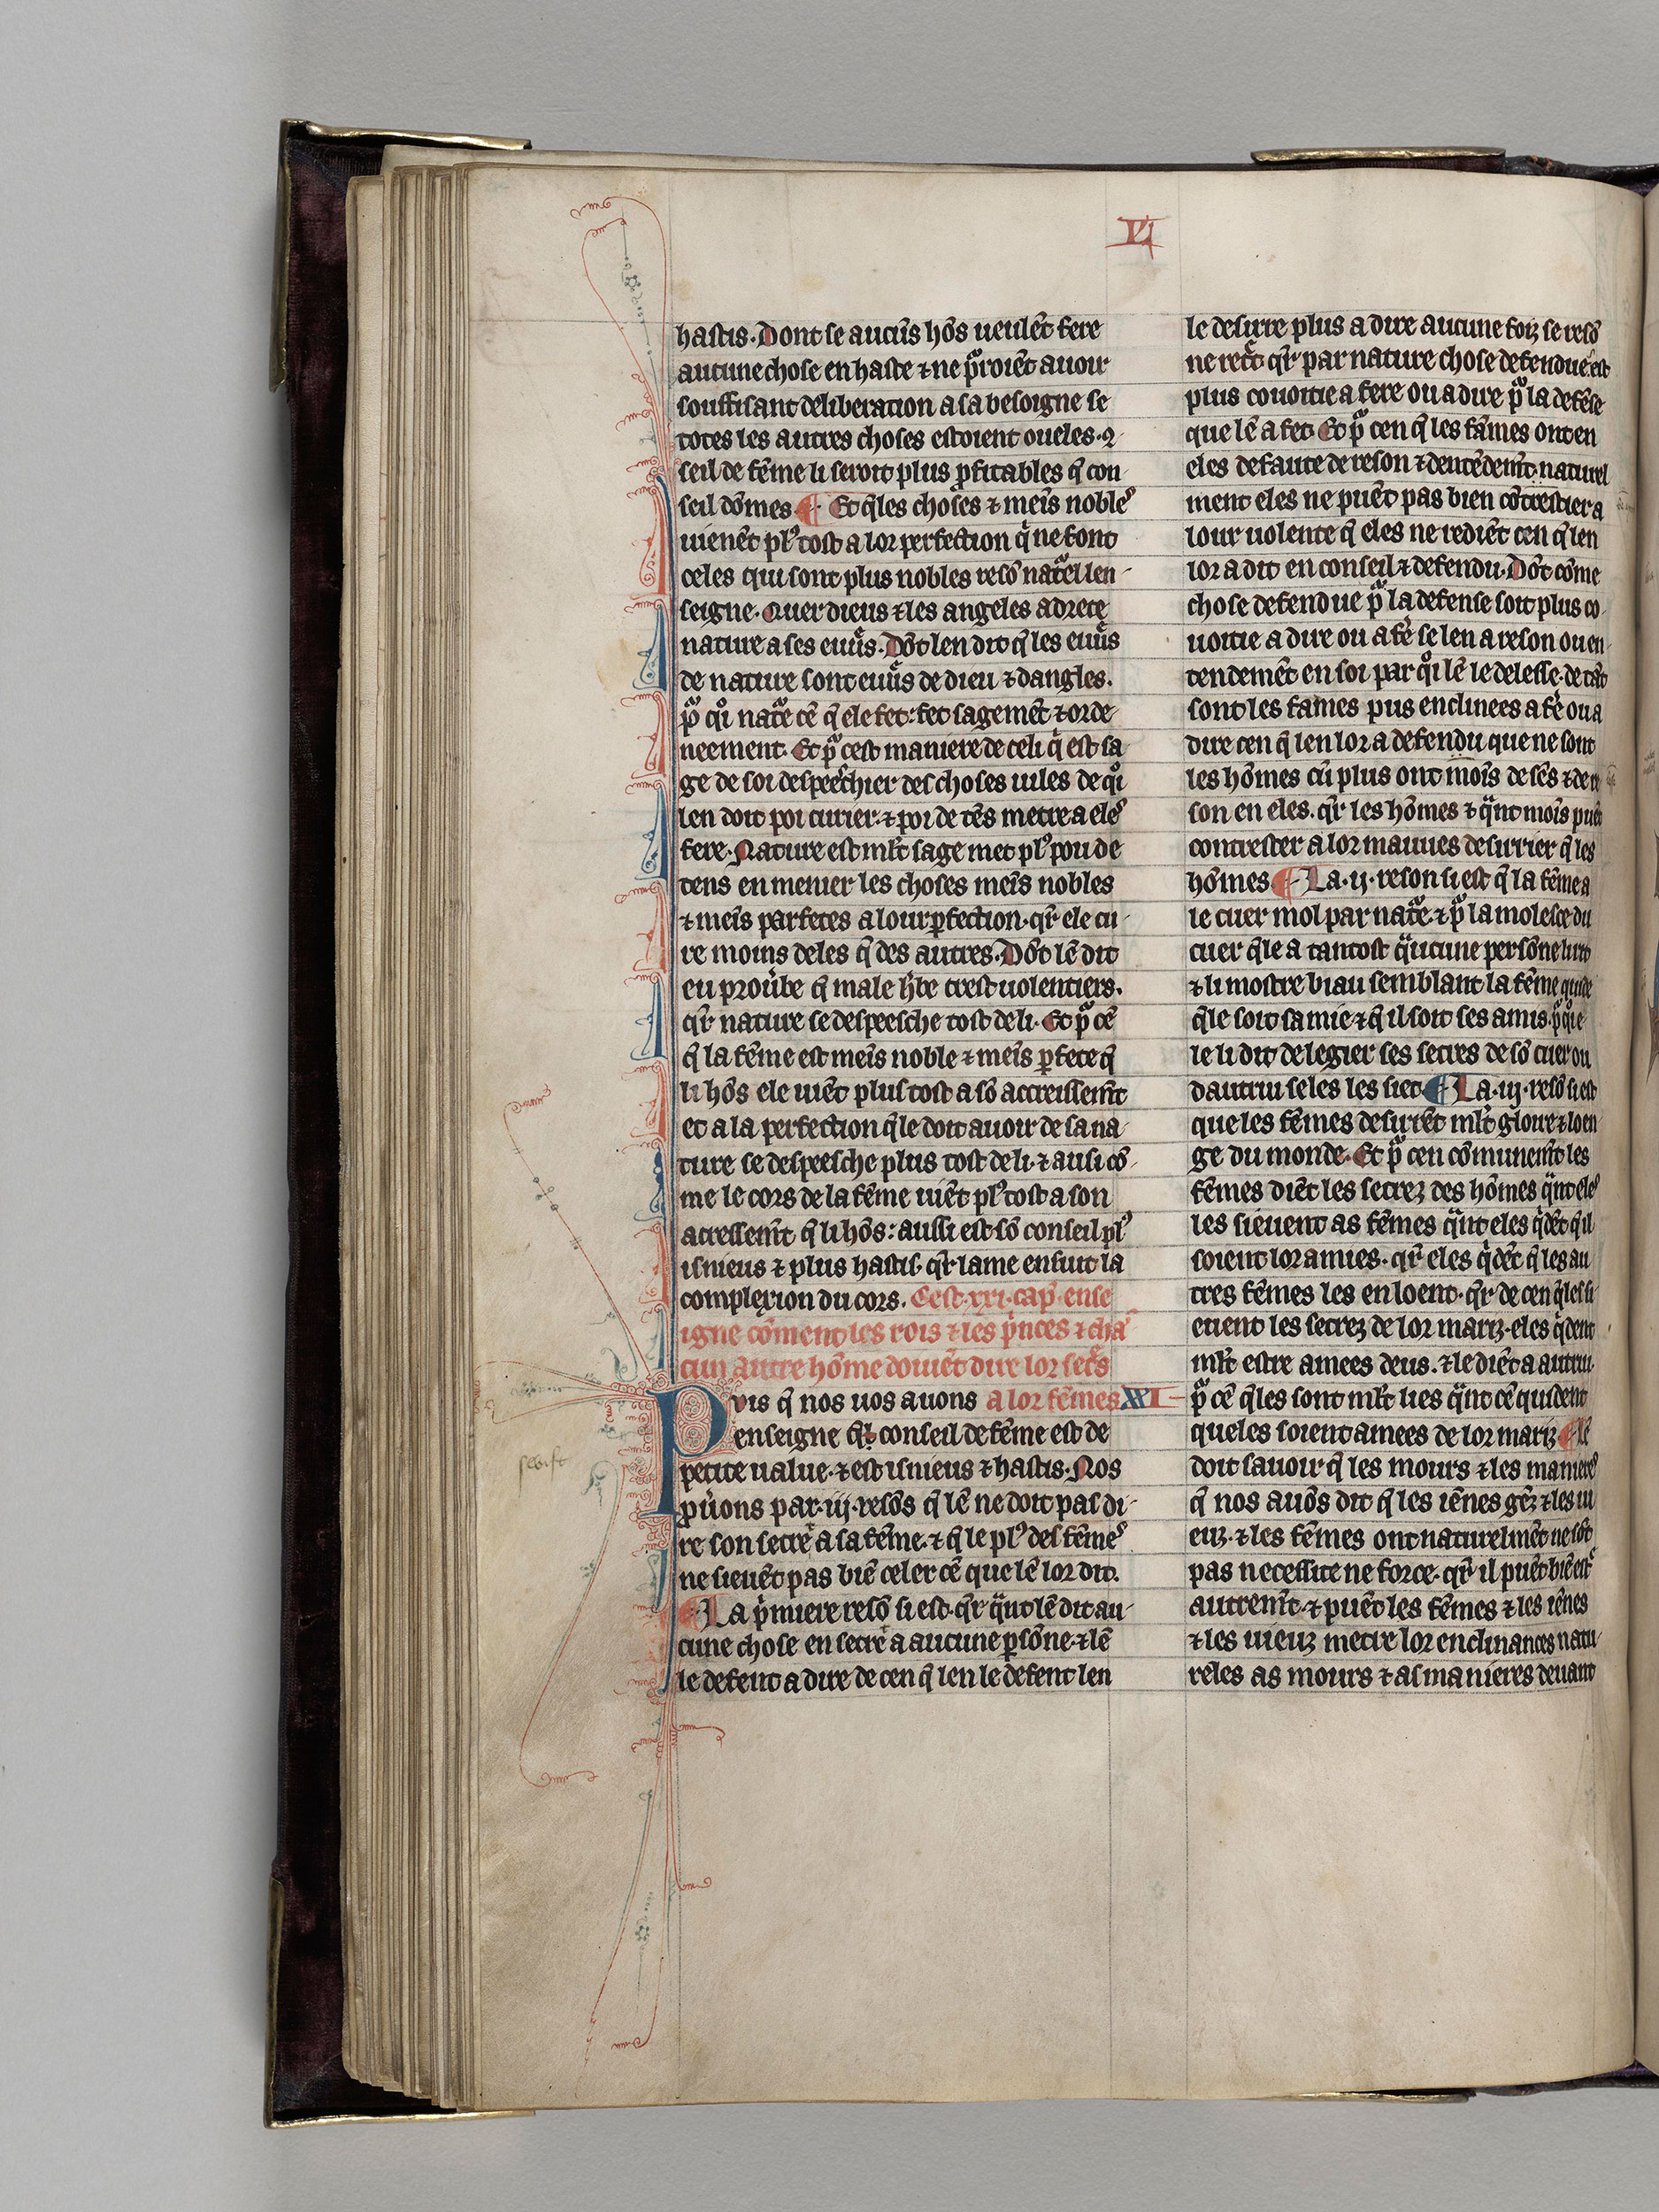 VI
hastis. Dont se aucūs hōs ueulēt fere
aucune chose en haste ⁊ ne pͣroiēt auoir
souffisant deliberacion a sa besoigne se
totes les autres choses estoient oueles. 2
seil de fēme li seroit plus pfitables q̄ con
seil dōmes ¶ Et q̄ les choses ⁊ meīs nobles
uienēt plꝰ tost a lor perfection q̄ ne font
celes qui sont plus nobles resō natͣel len
seigne. Quer dieus ⁊ les angeles adrece
nature a ses euuͣs. Dōt len dit q̄ les euuͣs
de nature sont euuͣs de dieu ⁊ dangles.
pͣ qͦi natͣe cē q̄ ele fet: fet sagemēt ⁊ orde
neement. Et pͣ cest maniere de celi q̄ est sa
ge de soi despeechier des choses uiles de qͦi
len doit poi curier: ⁊ poi de tēs metre a eles
fere. Nature est ml̄t sage met plꝰ pou de
tens en menier les choses meīs nobles
⁊ meīs parfetes a lour ꝑfection. qͬ ele cu
re moins deles q̄ des autres. Dōt lē dit
eu prouūbe q̄ male hͥbe crest uolentiers.
qͬ nature se despeesche tost de li. Et pͣ cē
q̄ la fēme est meīs noble ⁊ meīs ꝑfete q̄
li hōs ele uiēt plus tost a sō accreissemēt
et a la perfection q̄le doit auoir de sa na
ture se despeesche plus tost de li. ⁊ ausi cō
me le cors de la fēme uiēt plꝰ tost a son
acressemēt q̄ li hōs: aussi est sō conseil plꝰ
isnieus ⁊ plus hastis. qͬ lame ensuit la
complexion du cors. Cest. xxi. cap̄. ense
igne cōment les rois ⁊ les pͥnces ⁊ cha
cun autre hōme doiuēt dire lor secͬs
a lor fēmes XXI
Puis q̄ nos uos auons
enseigne q̄ conseil de fēme est de
petite ualue. ⁊ est isnieus ⁊ hastis. Nos
pͬuons par. iij. resōs q̄ lē ne doit pas di
re son secre a sa fēme. ⁊ q̄ le plꝰ des fēmes
ne sieuēt pas biē celer cē que lē lor dit.
¶ La pͥmiere resō si est. qͬ qͣnt lē dit au
cune chose en secre a aucune ꝑsōne. ⁊ lē
le defent a dire de cen q̄ len le defent len
le desirre plus a dire aucune foiz se resō
ne recͣt qͬ par nature chose defendue. est
plus couoitie a fere ou a dire pͣ la defēse
que lē a fet. Et pͣ cen q̄ les fāmes ont en
eles defaute de reson ⁊ dentēdemēt. naturel
ment eles ne puēt pas bien cōtrestier a
lour uolente q̄ eles ne redīēt cen q̄ len
lor a dit en conseil ⁊ defendu. Dōt cōme
chose defendue pͣ la defense soit plus co
uoitie a dire ou a fē se len a reson ou en
tendemēt en soi par qͦi lē le delesse. de tāt
sont les fames pus enclinees a fē ou a
dire cen q̄ len lor a defendu que ne sont
les hōmes cū plus ont moīs de sēs ⁊ de re
son en eles. qͬ les hōmes ⁊ qͣnt moīs puēt
contrester a lor mauues desirrier q̄ les
hōmes ¶ La. ij. reson si est q̄ la fēme a
le cuer mol par natͣe. ⁊ pͣ la molesce du
cuer q̄le a tantost qͣucune persōne li rit
⁊ li mostre biau semblant la fēme quide
q̄le soit samie ⁊ q̄ il soit ses amis. pͣ qͦie
le li dit de legier ses secres de sō cuer ou
dautrui se les les siet ¶ La. iij. resō si est
que les fēmes desirrēt ml̄t gloire ⁊ loen
ge du monde. Et pͣ cen cōmunemēt les
fēmes diēt les secrez des hōmes qͣnt eles
les sieuent as fēmes qͣnt eles qͥdēt q̄ il
soient lor amies. qͬ eles qͥdēt q̄ les au
tres fēmes les en loent. qͬ de cen q̄les li
euent les secrez de lor mariz. eles qͥdent
ml̄t estre amees deus. ⁊ le diēt a autrui.
pͣ cē q̄les sont ml̄t lies qͣnt cē quident
queles soient amees de lor mariz ¶ lē
doit sauoir q̄ les mours ⁊ les manieres
q̄ nos auōs dit q̄ les iēnes gēz ⁊ les ui
euz. ⁊ les fēmes ont naturelmēt ne sōt
pas necessite ne force. qͬ il puēt biē est͛
autremēt. ⁊ puēt les fēmes ⁊ les iēnes
⁊ les uieuz metre lor enclinances natu
reles as mours ⁊ as manieres deuant
swift